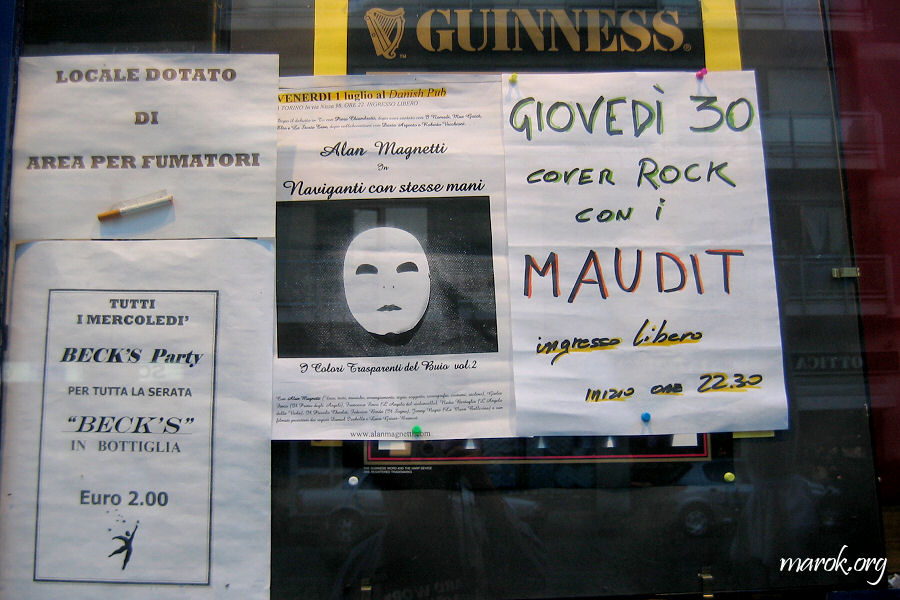 GUINNESS
LOCALE DOTATO
DI
AREA PER FUMATORI
TUTTI
I MERCOLEDI'
BECK'S Party
PER TUTTA LA SERATA
"BECK'S"
IN BOTTIGLIA
Euro 2.00
VENERDI 1 luglio al Danish Pub
TORINO In via Nizza ORE 22. INGRESSO LIBERO
Alan Magnetti
In
Naviganti con stesse mani
I Colori Trasparenti del Buio vol.2
www.alanmagnetti.com
GIOVEDÌ 30
COVER ROCK
CON i
MAUDIT
ingresso libero
INIZIO ORE 22.30
THE GUINNESS WORD AND THE HARP DEVICE
ARE REGISTERED TRADEMARKS
OTTICA
marok.org